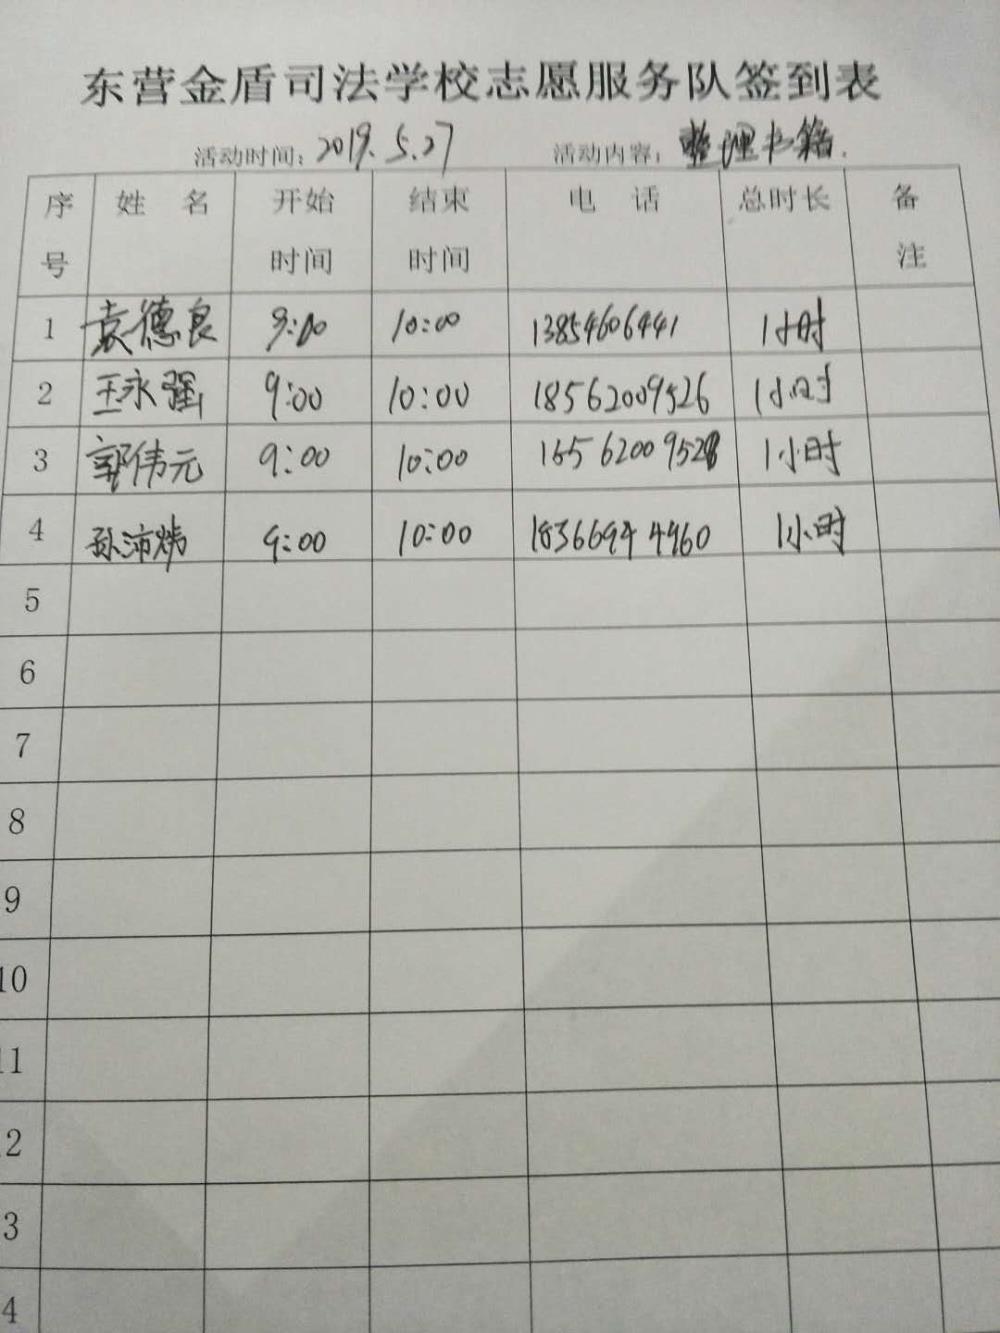 东营金盾司法学校志愿服务队签到表
活动时间：2019.5.27 活动内容：整理书籍.
序号 姓 名 开始时间 结束时间 电 话 总时长 备注
1 袁德良 9:00 10:00 13854606441 1小时
2 王永强 9:00 10:00 18562009526 1小时
3 郭伟元 9:00 10:00 1小时
4 孙沛炜 9:00 10:00 18366944960 1小时
5
6
7
8
9
10
11
2
3
4